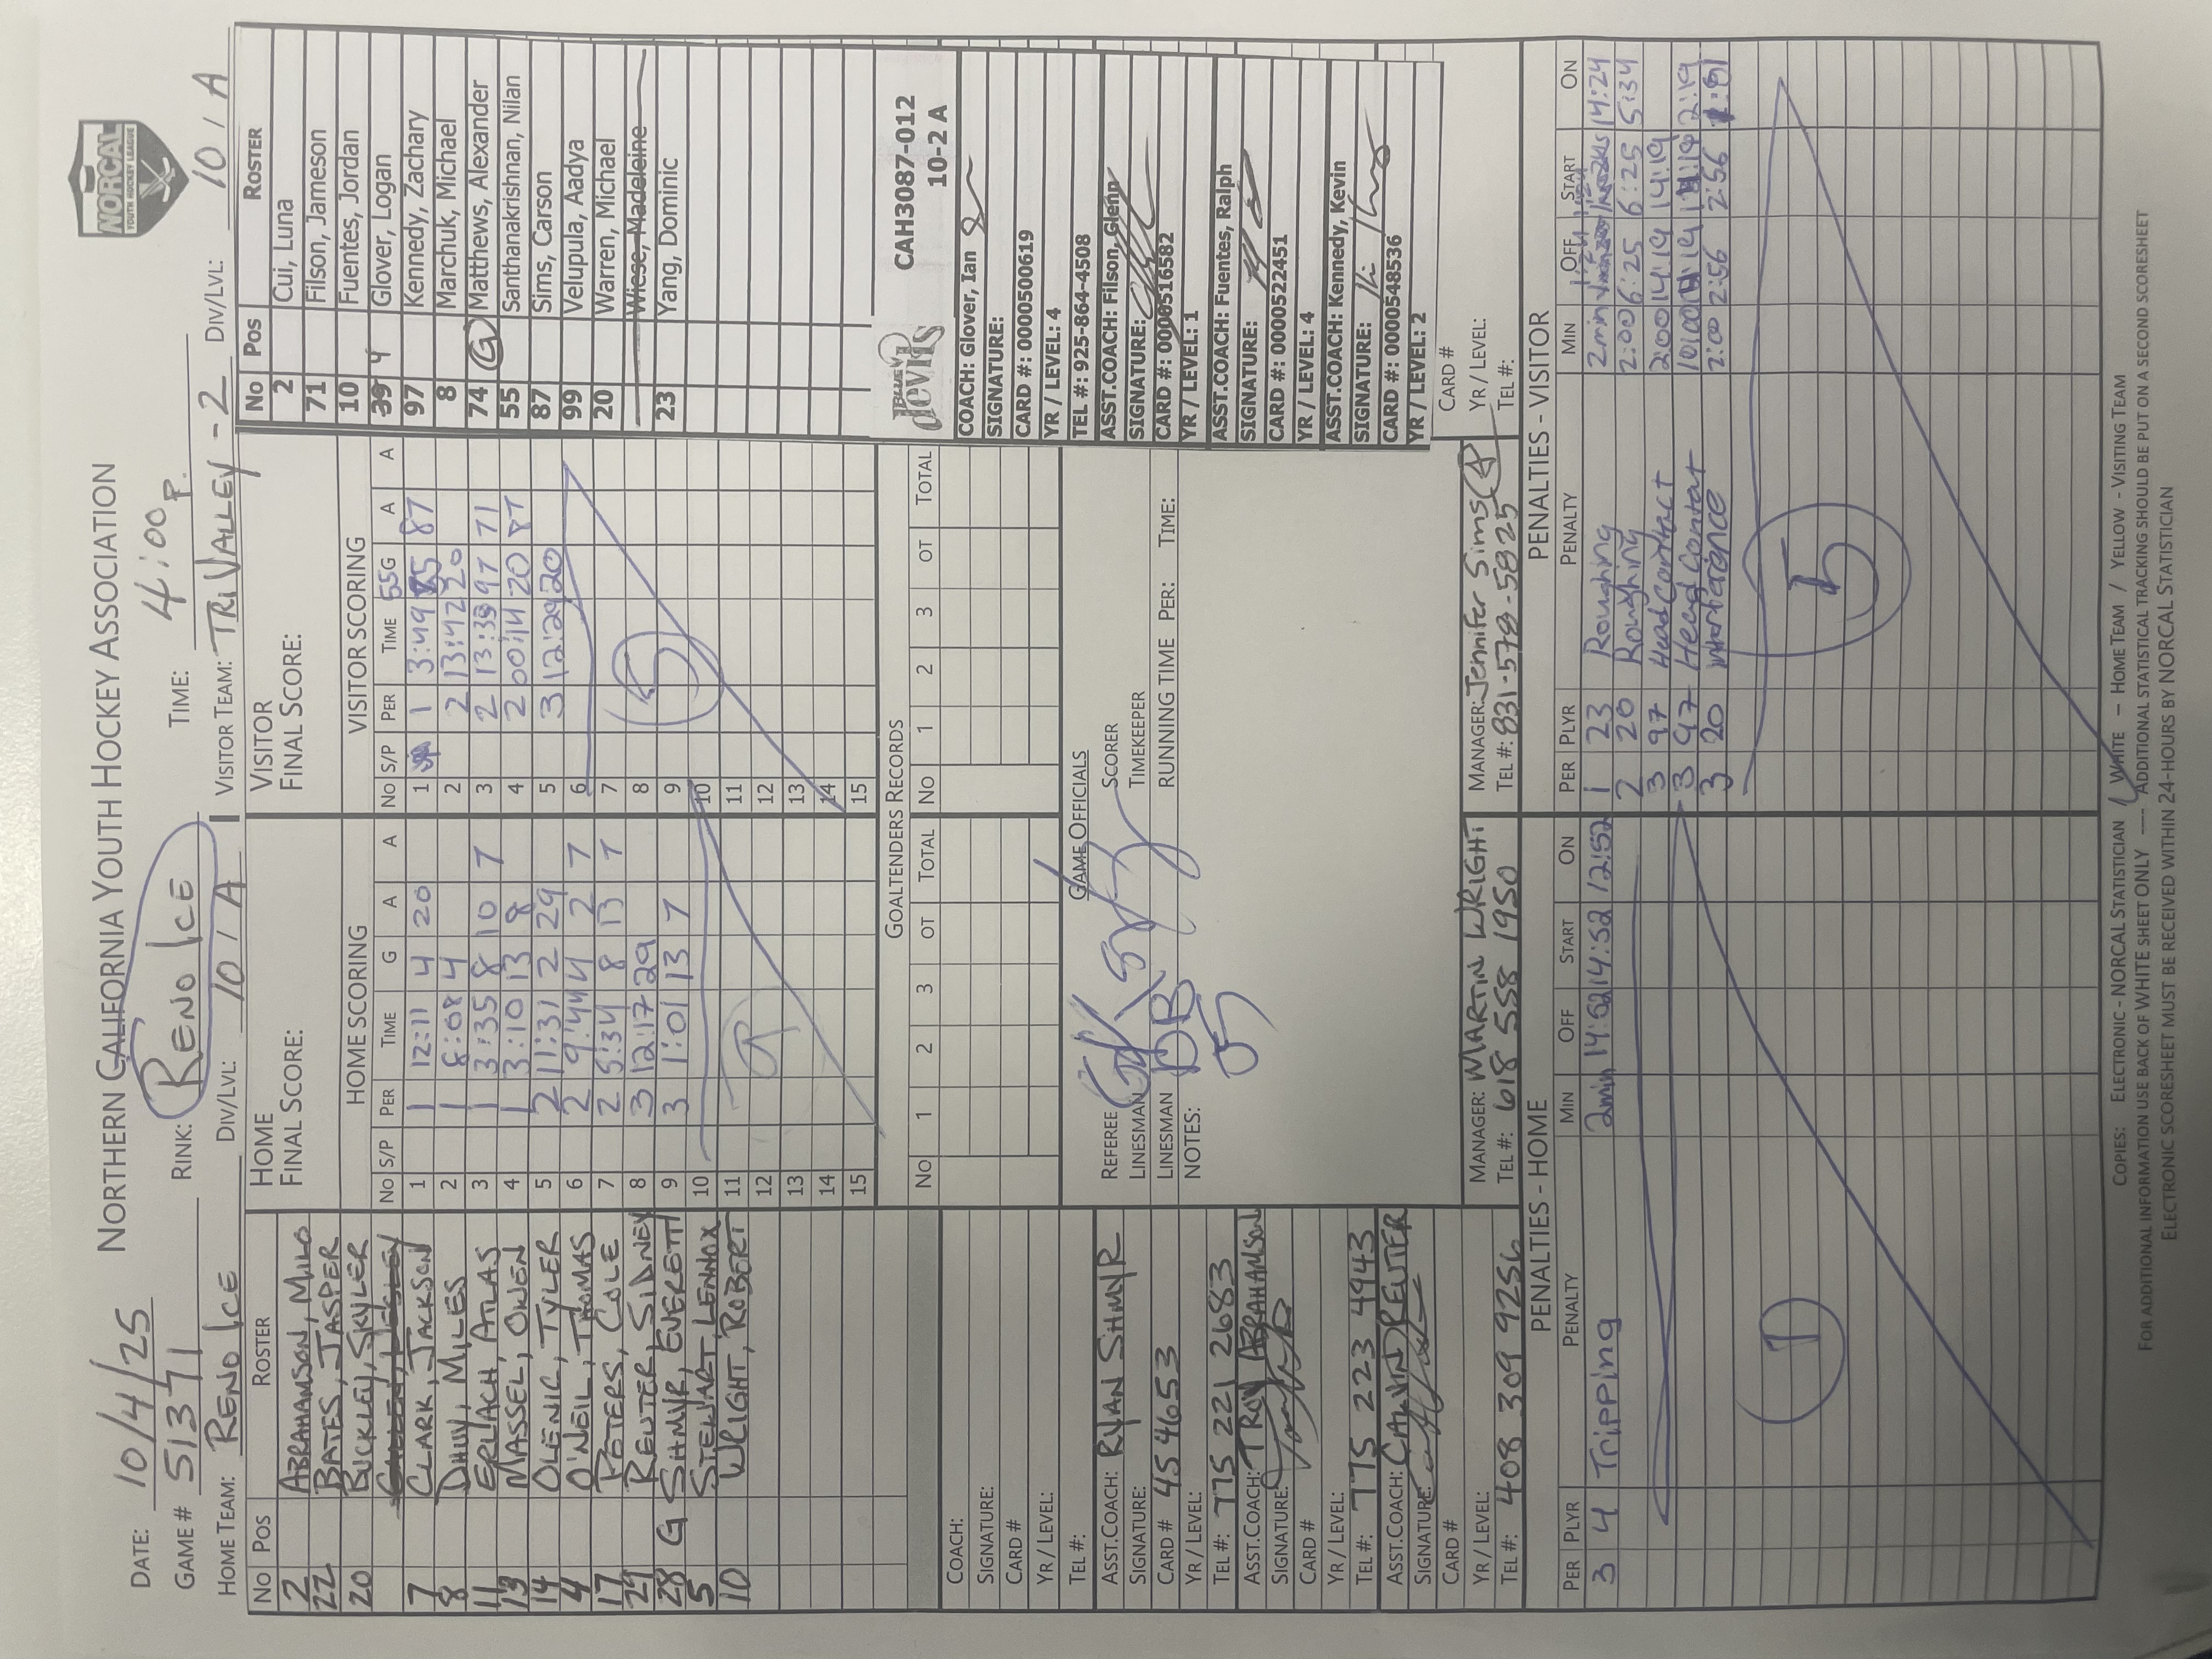 NORTHERN CALIFORNIA YOUTH HOCKEY ASSOCIATION
NORCAL
YOUTH HOCKEY LEAGUE
DATE: 10/4/25 RINK: RENO ICE TIME: 4:00 P.
GAME # 51371
HOME TEAM: RENO ICE DIV/LVL: 10 / A VISITOR TEAM: TRI VALLEY - 2 DIV/LVL: 10 / A
No Pos ROSTER
2 ABRAHAMSON, MILO
22 BATES, JASPER
20 BUCKLEY, SKYLER
7 CLARK, JACKSON
8 DHUY, MILES
11 ERLACH, ATLAS
13 MASSEL, OWEN
14 OLENIC, TYLER
4 O'NEIL, THOMAS
17 PETERS, COLE
29 REUTER, SIDNEY
28 G SHMYR, EVERETT
5 STEWART, LENNOX
10 WRIGHT, ROBERT
HOME
FINAL SCORE:
HOME SCORING
No S/P PER TIME G A A
1 1 12:11 4 20
2 1 8:08 4
3 1 3:35 8 10 7
4 1 3:10 13 8
5 2 11:31 2 29
6 2 9:44 4 2 7
7 2 5:34 8 13 7
8 3 12:17 29
9 3 1:01 13 7
10
11
12
13
14
15
9
VISITOR
FINAL SCORE:
VISITOR SCORING
No S/P PER TIME G A A
1 1 3:49 55 87
2 2 13:42 20
3 2 13:39 97 71
4 2 00:14 20 87
5 3 12:29 20
6
7
8
9
10
11
12
13
14
15
5
No Pos ROSTER
2 Cui, Luna
71 Filson, Jameson
10 Fuentes, Jordan
39 4 Glover, Logan
97 Kennedy, Zachary
8 Marchuk, Michael
74 G Matthews, Alexander
55 Santhanakrishnan, Nilan
87 Sims, Carson
99 Velupula, Aadya
20 Warren, Michael
Wiese, Madeleine
23 Yang, Dominic
GOALTENDERS RECORDS
No 1 2 3 OT TOTAL No 1 2 3 OT TOTAL
COACH:
SIGNATURE:
CARD #
YR / LEVEL:
TEL #:
ASST.COACH: RYAN SHMYR
SIGNATURE:
CARD # 454653
YR / LEVEL:
TEL #: 775 221 2683
ASST.COACH: TROY ABRAHAMSON
SIGNATURE:
CARD #
YR / LEVEL:
TEL #: 775 223 4943
ASST.COACH: CALVIN REUTER
SIGNATURE:
CARD #
YR / LEVEL:
TEL #: 408 309 9256
GAME OFFICIALS
REFEREE SCORER
LINESMAN TIMEKEEPER
LINESMAN RUNNING TIME PER: TIME:
NOTES:
MANAGER: MARTIN WRIGHT
TEL #: 618 558 1950
MANAGER: Jennifer Sims
TEL #: 831-578-5825
BLUE devils
CAH3087-012
10-2 A
COACH: Glover, Ian
SIGNATURE:
CARD #: 0000500619
YR / LEVEL: 4
TEL #: 925-864-4508
ASST.COACH: Filson, Glenn
SIGNATURE:
CARD #: 0000516582
YR / LEVEL: 1
ASST.COACH: Fuentes, Ralph
SIGNATURE:
CARD #: 0000522451
YR / LEVEL: 4
ASST.COACH: Kennedy, Kevin
SIGNATURE:
CARD #: 0000548536
YR / LEVEL: 2
CARD #
YR / LEVEL:
TEL #:
PENALTIES - HOME
PER PLYR PENALTY MIN OFF START ON
3 4 Tripping 2min 14:52 14:52 12:52
1
PENALTIES - VISITOR
PER PLYR PENALTY MIN OFF START ON
1 23 Roughing 2min 14:24
2 20 Roughing 2:00 6:25 6:25 5:34
3 97 Head Contact 2:00 14:19 14:19
3 97 Head Contact 10:00 14:19 14:19 2:19
3 20 Interference 2:00 2:56 2:56
5
COPIES: ELECTRONIC - NORCAL STATISTICIAN WHITE – HOME TEAM / YELLOW - VISITING TEAM
FOR ADDITIONAL INFORMATION USE BACK OF WHITE SHEET ONLY ---- ADDITIONAL STATISTICAL TRACKING SHOULD BE PUT ON A SECOND SCORESHEET
ELECTRONIC SCORESHEET MUST BE RECEIVED WITHIN 24-HOURS BY NORCAL STATISTICIAN